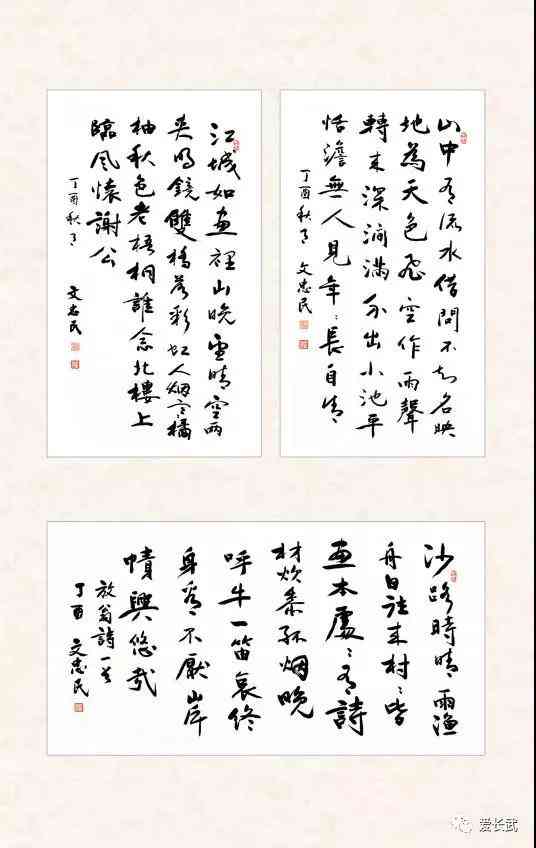 山中有流水借問不知名映
地為天色飛空作雨聲
轉来深澗滿分出小池平
恬澹無人見年〻長自清
丁酉秋月 文忠民
江城如畫裡山晚望晴空兩
夾明鏡雙橋落彩虹人烟寒橘
柚秋色老梧桐誰念北樓上
臨風懷謝公
丁酉秋月 文忠民
沙路時晴雨漁
舟日往来村〻皆
畫本處〻有詩
材炊黍孤烟晚
呼牛一笛哀終
身看不厭山岸
幘興悠哉
放翁詩一首
丁酉 文忠民
爱长武